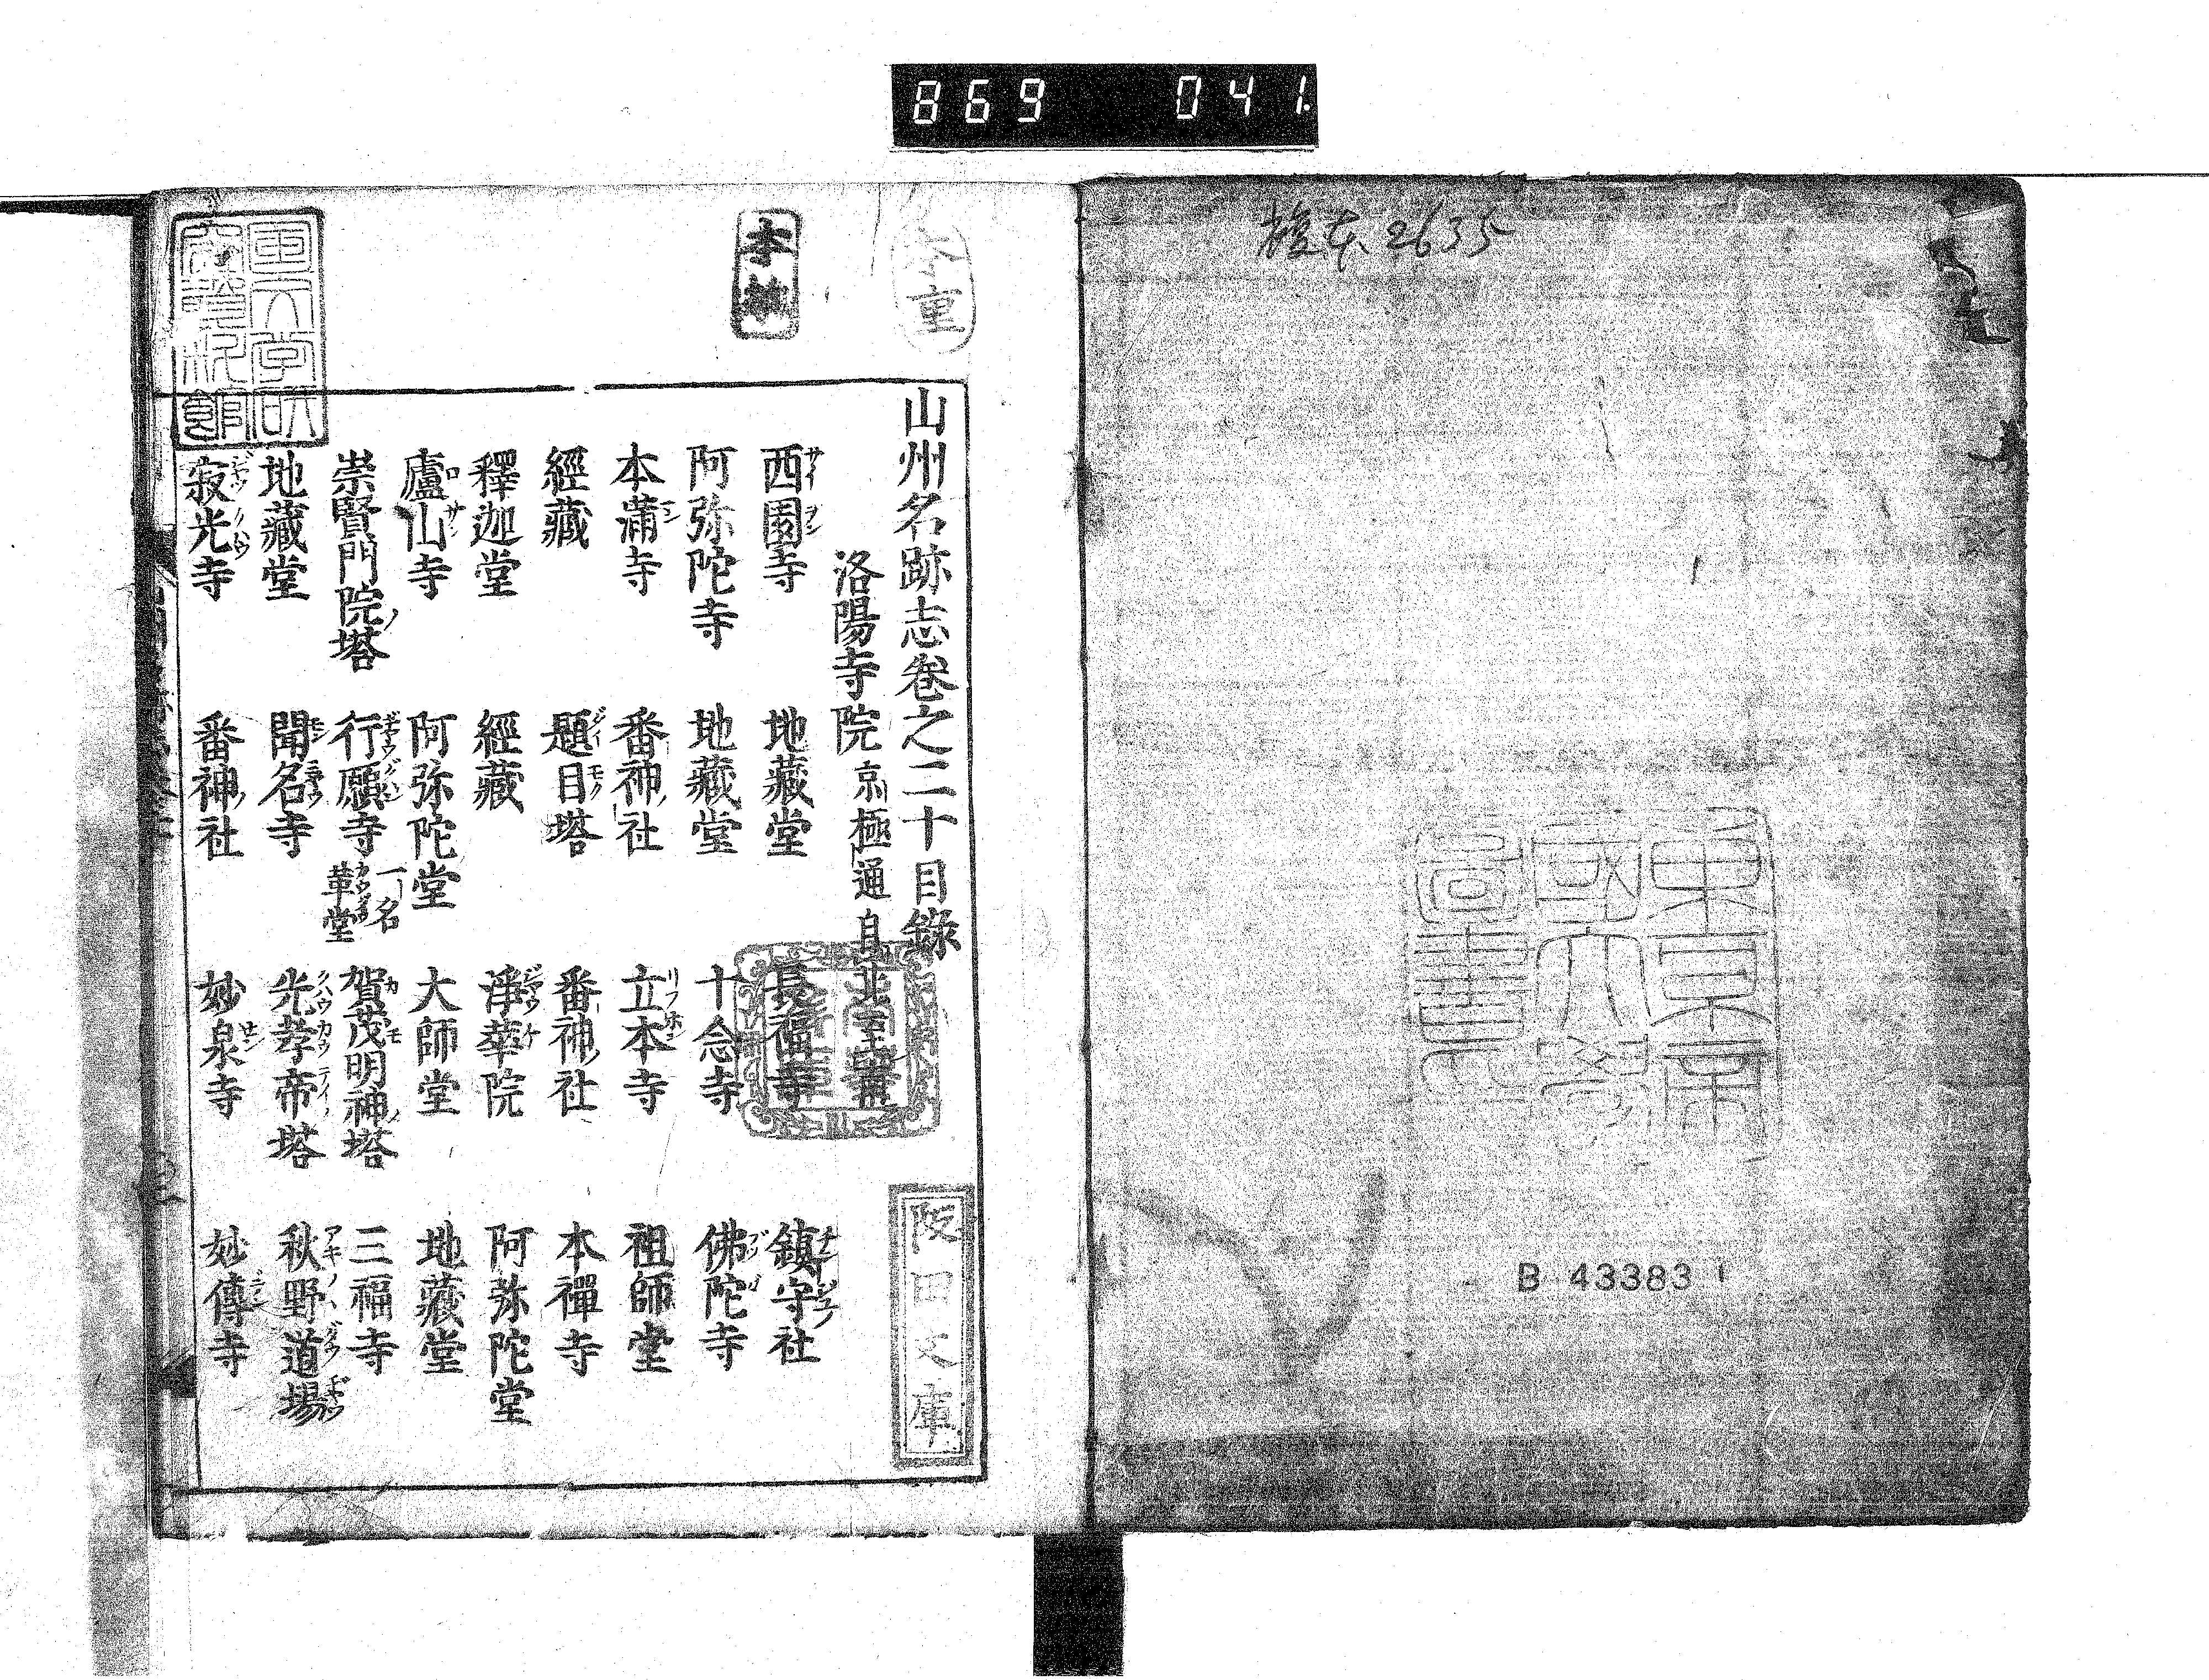 869 041.
複本 2635
東京帝
國大學
圖書印
B 43383
山州名跡志卷之二十目録
洛陽寺院 京極通 自北至南
西園寺 地藏堂 長福寺 鎮守社
阿弥陀寺 地藏堂 十念寺 佛陀寺
本滿寺 番神社 立本寺 祖師堂
經藏 題目塔 番神社 本禪寺
釋迦堂 經藏 淨華院 阿弥陀堂
廬山寺 阿弥陀堂 大師堂 地藏堂
崇賢門院塔 行願寺 一名革堂 賀茂明神塔 三福寺
地藏堂 聞名寺 光孝帝塔 秋野道場
寂光寺 番神社 妙泉寺 妙傳寺
阪田文庫